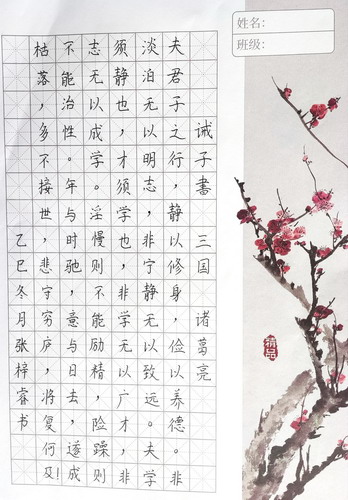 姓名:
班级:
诫子書 三国 诸葛亮
夫君子之行，静以修身，俭以养德。非
淡泊无以明志，非宁静无以致远。夫学
须静也，才须学也，非学无以广才，非
志无以成学。淫慢则不能励精，险躁则
不能治性。年与时驰，意与日去，遂成
枯落，多不接世，悲守穷庐，将复何及!
乙巳冬月张梓睿书
精品